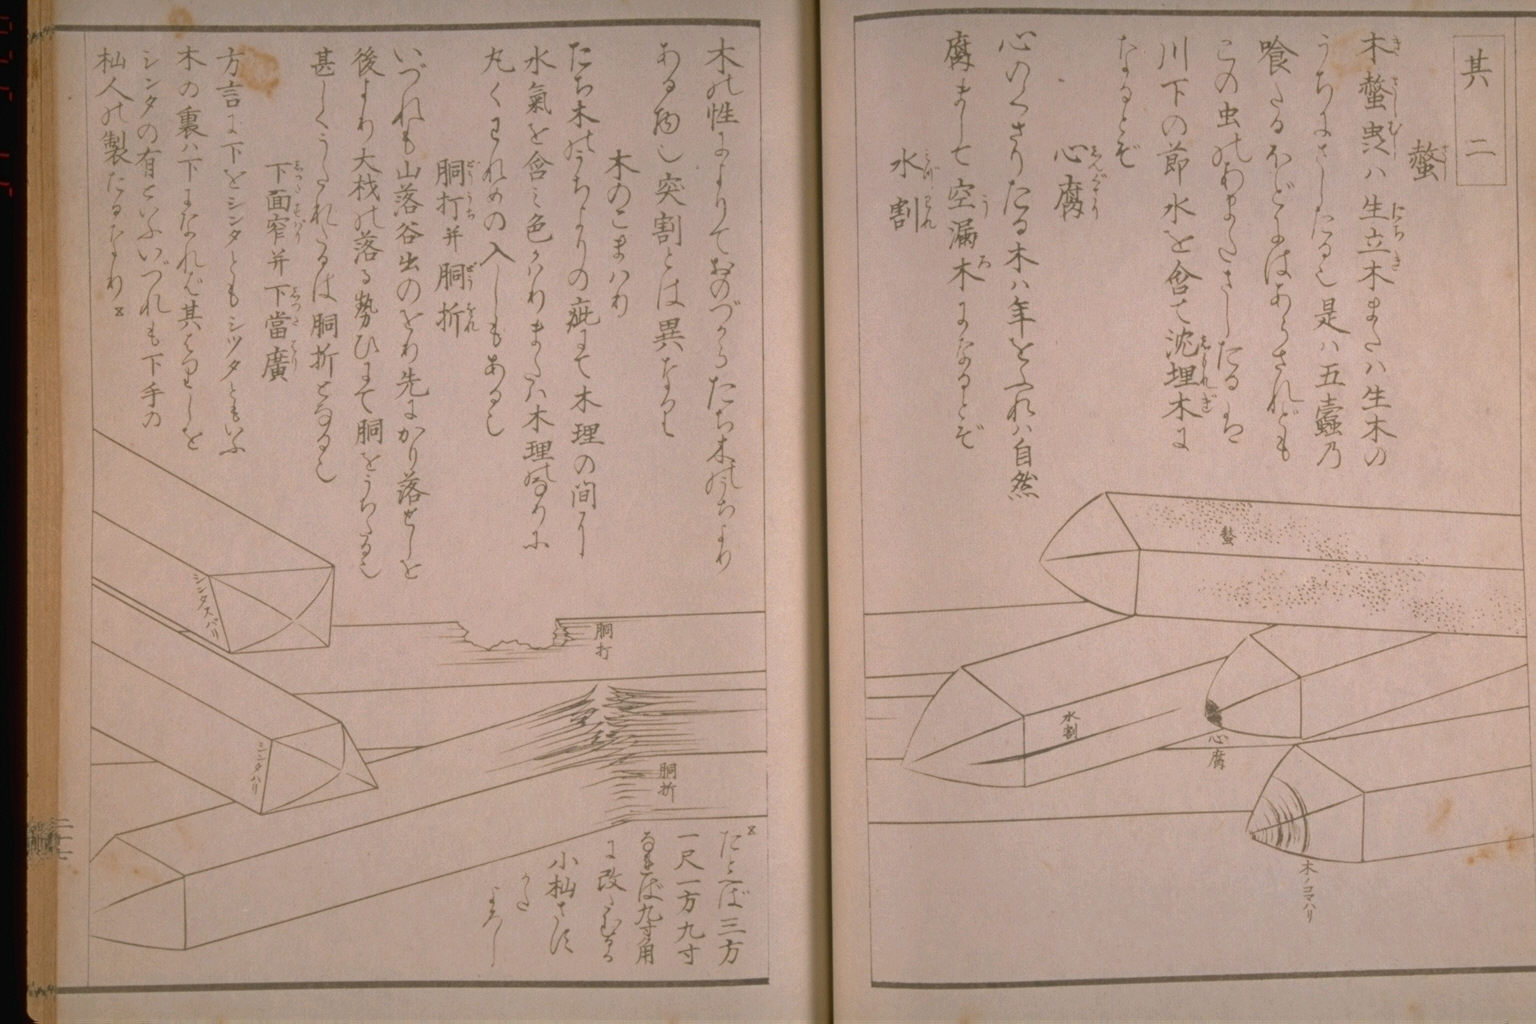 其二
螫
木螫虫ハ生立木またハ生木の
うちにさしたる也是ハ五蠧乃
喰たるほどにはあらされども
この虫のわきたさしたる
川下の節水を含て沈埋木に
なるとぞ
心腐
心のくさりたる木ハ年をふれハ自然
腐まして空漏木になるとぞ
水割
木の性によりておのづからたち木のうちより
ある物也突割とは異なる也
木のこまハり
たち木のうちよりの疵にて木理の間に
水氣を含ミ色かハりまたハ木理のなりに
丸くわれめの入しもあるし
胴打并胴折
いづれも山落谷出のをり先にかり落せしを
後より大栈の落る勢ひにて胴をうちたる也
甚しくうたれたるは胴折となる也
下面窄并下當廣
方言に下をシンタともシツタともいふ
木の裏ハ下になれバ其まましを
シンタの有といふいづれも下手の
杣人の製たるなり
たとへば三方
一尺一方九寸
なれば九寸角
に改むる
小杣さは
かた
よろし
螫
水割
心腐
木ノコマハリ
胴打
胴折
シンタスバリ
シンタハリ